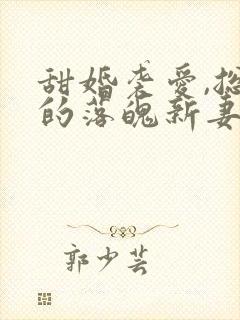 甜婚袭爱,总
的落魄新妻
郭少芸